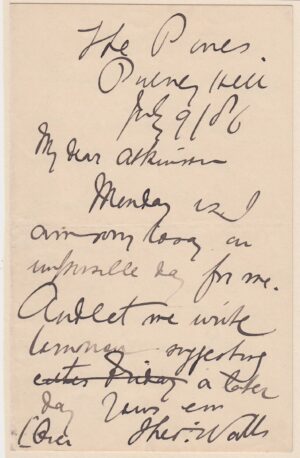 The Pines.
Putney Hill
July 9/86
My dear Atkinson
Monday is I
am sorry to say an
impossible day for me.
And let me write
tomorrow suggesting
either Friday a later
day Yours em
(Over Theo: Watts